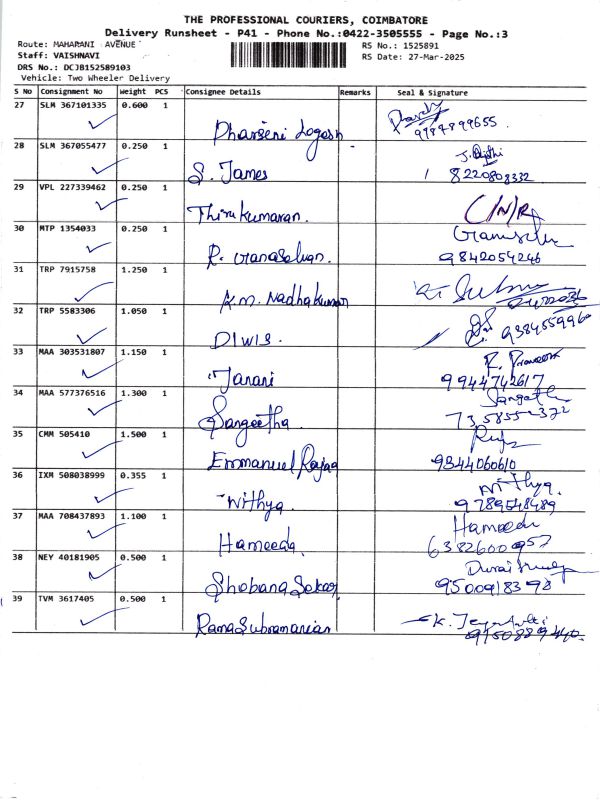 THE PROFESSIONAL COURIERS, COIMBATORE
Delivery Runsheet - P41 - Phone No.:0422-3505555 - Page No.:3
Route: MAHARANI AVENUE
RS No.: 1525891
Staff: VAISHNAVI
RS Date: 27-Mar-2025
DRS No.: DCJB152589103
Vehicle: Two Wheeler Delivery
S No Consignment No Weight PCS Consignee Details Remarks Seal & Signature
27 SLM 367101335 0.600 1
Dharseni Logesh
28 SLM 367055477 0.250 1
S. James 8220808332
29 VPL 227339462 0.250 1
Thirukumaran.
30 MTP 1354033 0.250 1
9842054246
31 TRP 7915758 1.250 1
K.M. Nadhakumar
32 TRP 5583306 1.050 1
DIWIS. 9384559960
33 MAA 303531807 1.150 1
Janani 9944742617
34 MAA 577376516 1.300 1
Sangeetha
35 CMM 505410 1.500 1
Emmanuel 9344060610
36 IXM 508038999 0.355 1 Nithya.
Nithya. 9789548489
37 MAA 708437893 1.100 1 Hameeda
Hameeda. 6382600957
38 NEY 40181905 0.500 1
Shobana Sekar 9500918398
39 TVM 3617405 0.500 1
Rama Subramanian